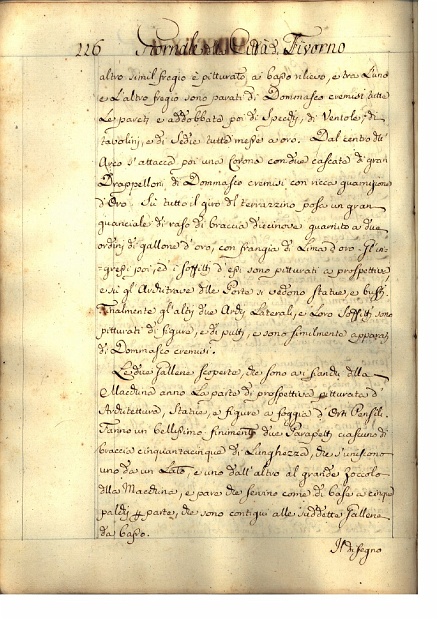 226 Giornale della Città di Livorno
altro simil fregio è pitturato a basso rilievo, e tra l'uno
e l'altro fregio sono parati di Dommasco cremisi tutte
le pareti e addobbate poi di Specchj, di Ventole, di
tavolini, e di Sedie tutte messe a oro. Dal centro dell'
Arco s'attacca poi una Corona con due cascate di gran
Drappelloni di Dommasco cremisi con ricca guarnizione
d'Oro. Su tutto il giro del terrazzino posa un gran
guanciale di raso di braccia diecinove guarnito a due
ordini di gallone d'oro, con frangia di Lima d'oro. Gl'in=
=gressi poi, ed i soffitti d'essi sono pitturati a prospettive
e su gl'Architrave delle Porte si vedono statue, e busti.
Finalmente gl'altri due Archj Laterali, e loro Soffitti sono
pitturati di figure, e di putti, e sono similmente apparati
di Dommasco cremisi.
Le dieci Gallerie scoperte, che sono a i fianchi della
Macchina anno la parte di prospettiva pitturata d'
Architettura, Statue, e figure a foggia d'Orti Pensili.
Fanno un bellissimo finimento due Parapetti ciascuno di
braccia cinquantacinque di Lunghezza, che s'uniscono
uno da un Lato, e uno dall'altro al grande Zoccolo
della Macchina, e pare che servino come di base a cinque
palchj per parte, che sono contigui alle suddette Gallerie
da basso.
Il disegno